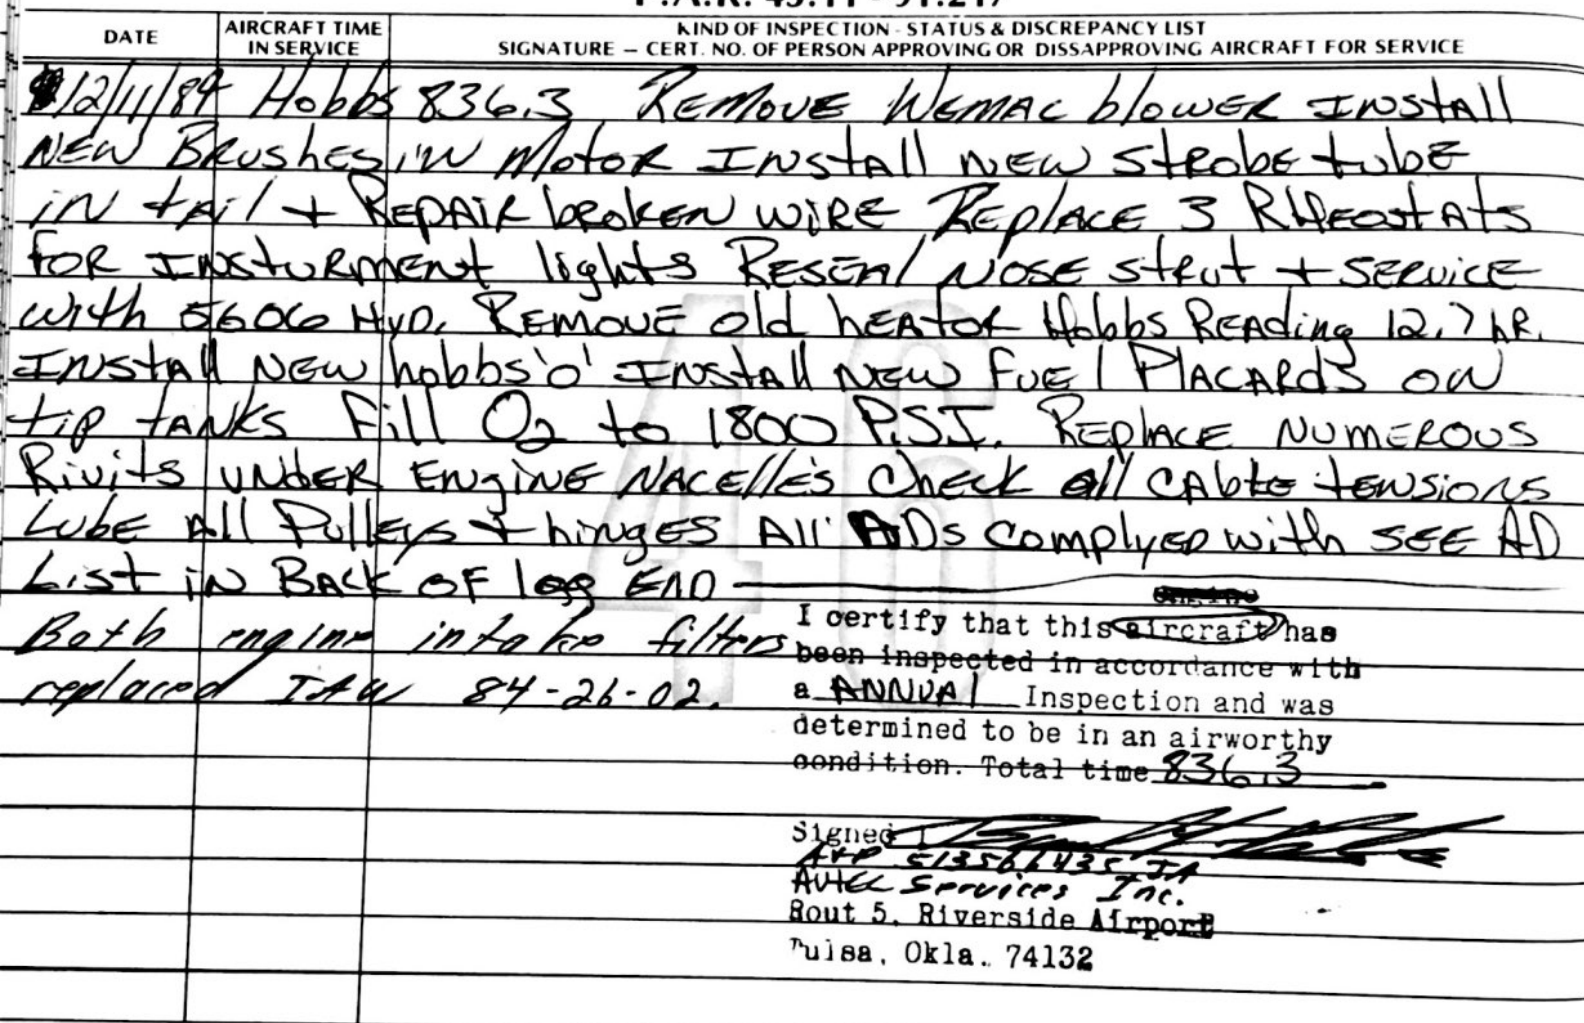 DATE
AIRCRAFT TIME
IN SERVICE
KIND OF INSPECTION - STATUS & DISCREPANCY LIST
SIGNATURE — CERT. NO. OF PERSON APPROVING OR DISSAPPROVING AIRCRAFT FOR SERVICE
12/11/84 Hobbs 836.3 REMOVE WEMAC blOWER INStAll
NEW BRushes iN MotoR INStall NEW StROBE tubE
iN tAil + REPAIR bROKEN WIRE REplACE 3 RHEOStAts
FOR INStURMENt lights RESEAl NOSE StRut + SERVICE
With 5606 HYD. REMOVE Old hEAtOR Hobbs READing 12.7 hR.
INStAll NEW hobbs 'O' INStAll NEW FuEl PlACARdS ON
tip tANKS Fill O2 to 1800 P.S.I. REPlACE NUMEROUS
Rivits UNdER ENgiNE NACEllES Check All CAblE tENSiONS
LubE All PullEyS + hiNGES All ADs COMplyED with SEE AD
List iN BACK OF log END
Both engine intake filters
replaced IAW 84-26-02.
engine
I certify that this aircraft has
been inspected in accordance with
a ANNUAl Inspection and was
determined to be in an airworthy
condition. Total time 836.3
Signed
A+P 513566435 IA
AVTEC Services Inc.
Rout 5, Riverside Airport
Tulsa, Okla. 74132
46